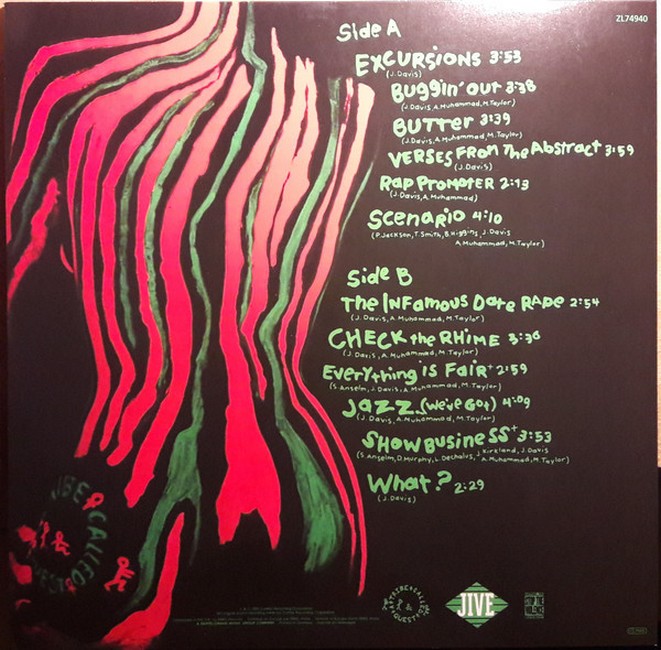 ZL74940
Side A
EXCURSIONS 3:53
(J.Davis)
Buggin' Out 3:38
(J.Davis, A.Muhammad, M.Taylor)
BUTTER 3:39
(J.Davis, A.Muhammad, M.Taylor)
VERSES FROM The Abstract+ 3:59
(J.Davis)
Rap Promoter 2:13
(J.Davis, A.Muhammad)
Scenario 4:10
(P.Jackson, T.Smith, B.Higgins, J.Davis
A.Muhammad, M.Taylor)
Side B
The INFamous Date RAPE 2:54
(J.Davis, A.Muhammad, M.Taylor)
CHECK the RHIME 3:36
(J.Davis, A.Muhammad, M.Taylor)
EVERYthing IS FAIR+ 2:59
(S.Anselm, J.Davis, A.Muhammad, M.Taylor)
JAZZ (We've Got) 4:09
(J.Davis, A.Muhammad, M.Taylor)
SHOW BUSINESS+ 3:53
(S.Anselm, D.Murphy, L.Dechalus, J.Kirkland, J.Davis
A.Muhammad, M.Taylor)
What? 2:29
(J.Davis)
CALLED
JIVE